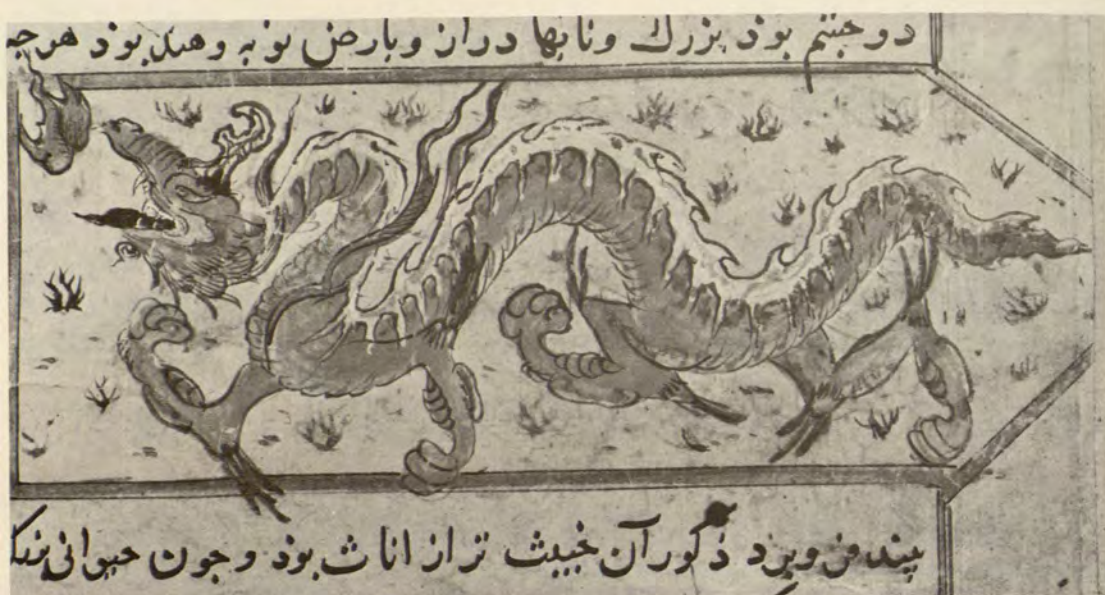 دو جشم بود بزرك ونابها دراز وبارض نوبه وهند بود هرجه
بیند فرو برد ذکور آن خبیث تر از اناث بود وجون حیوانی